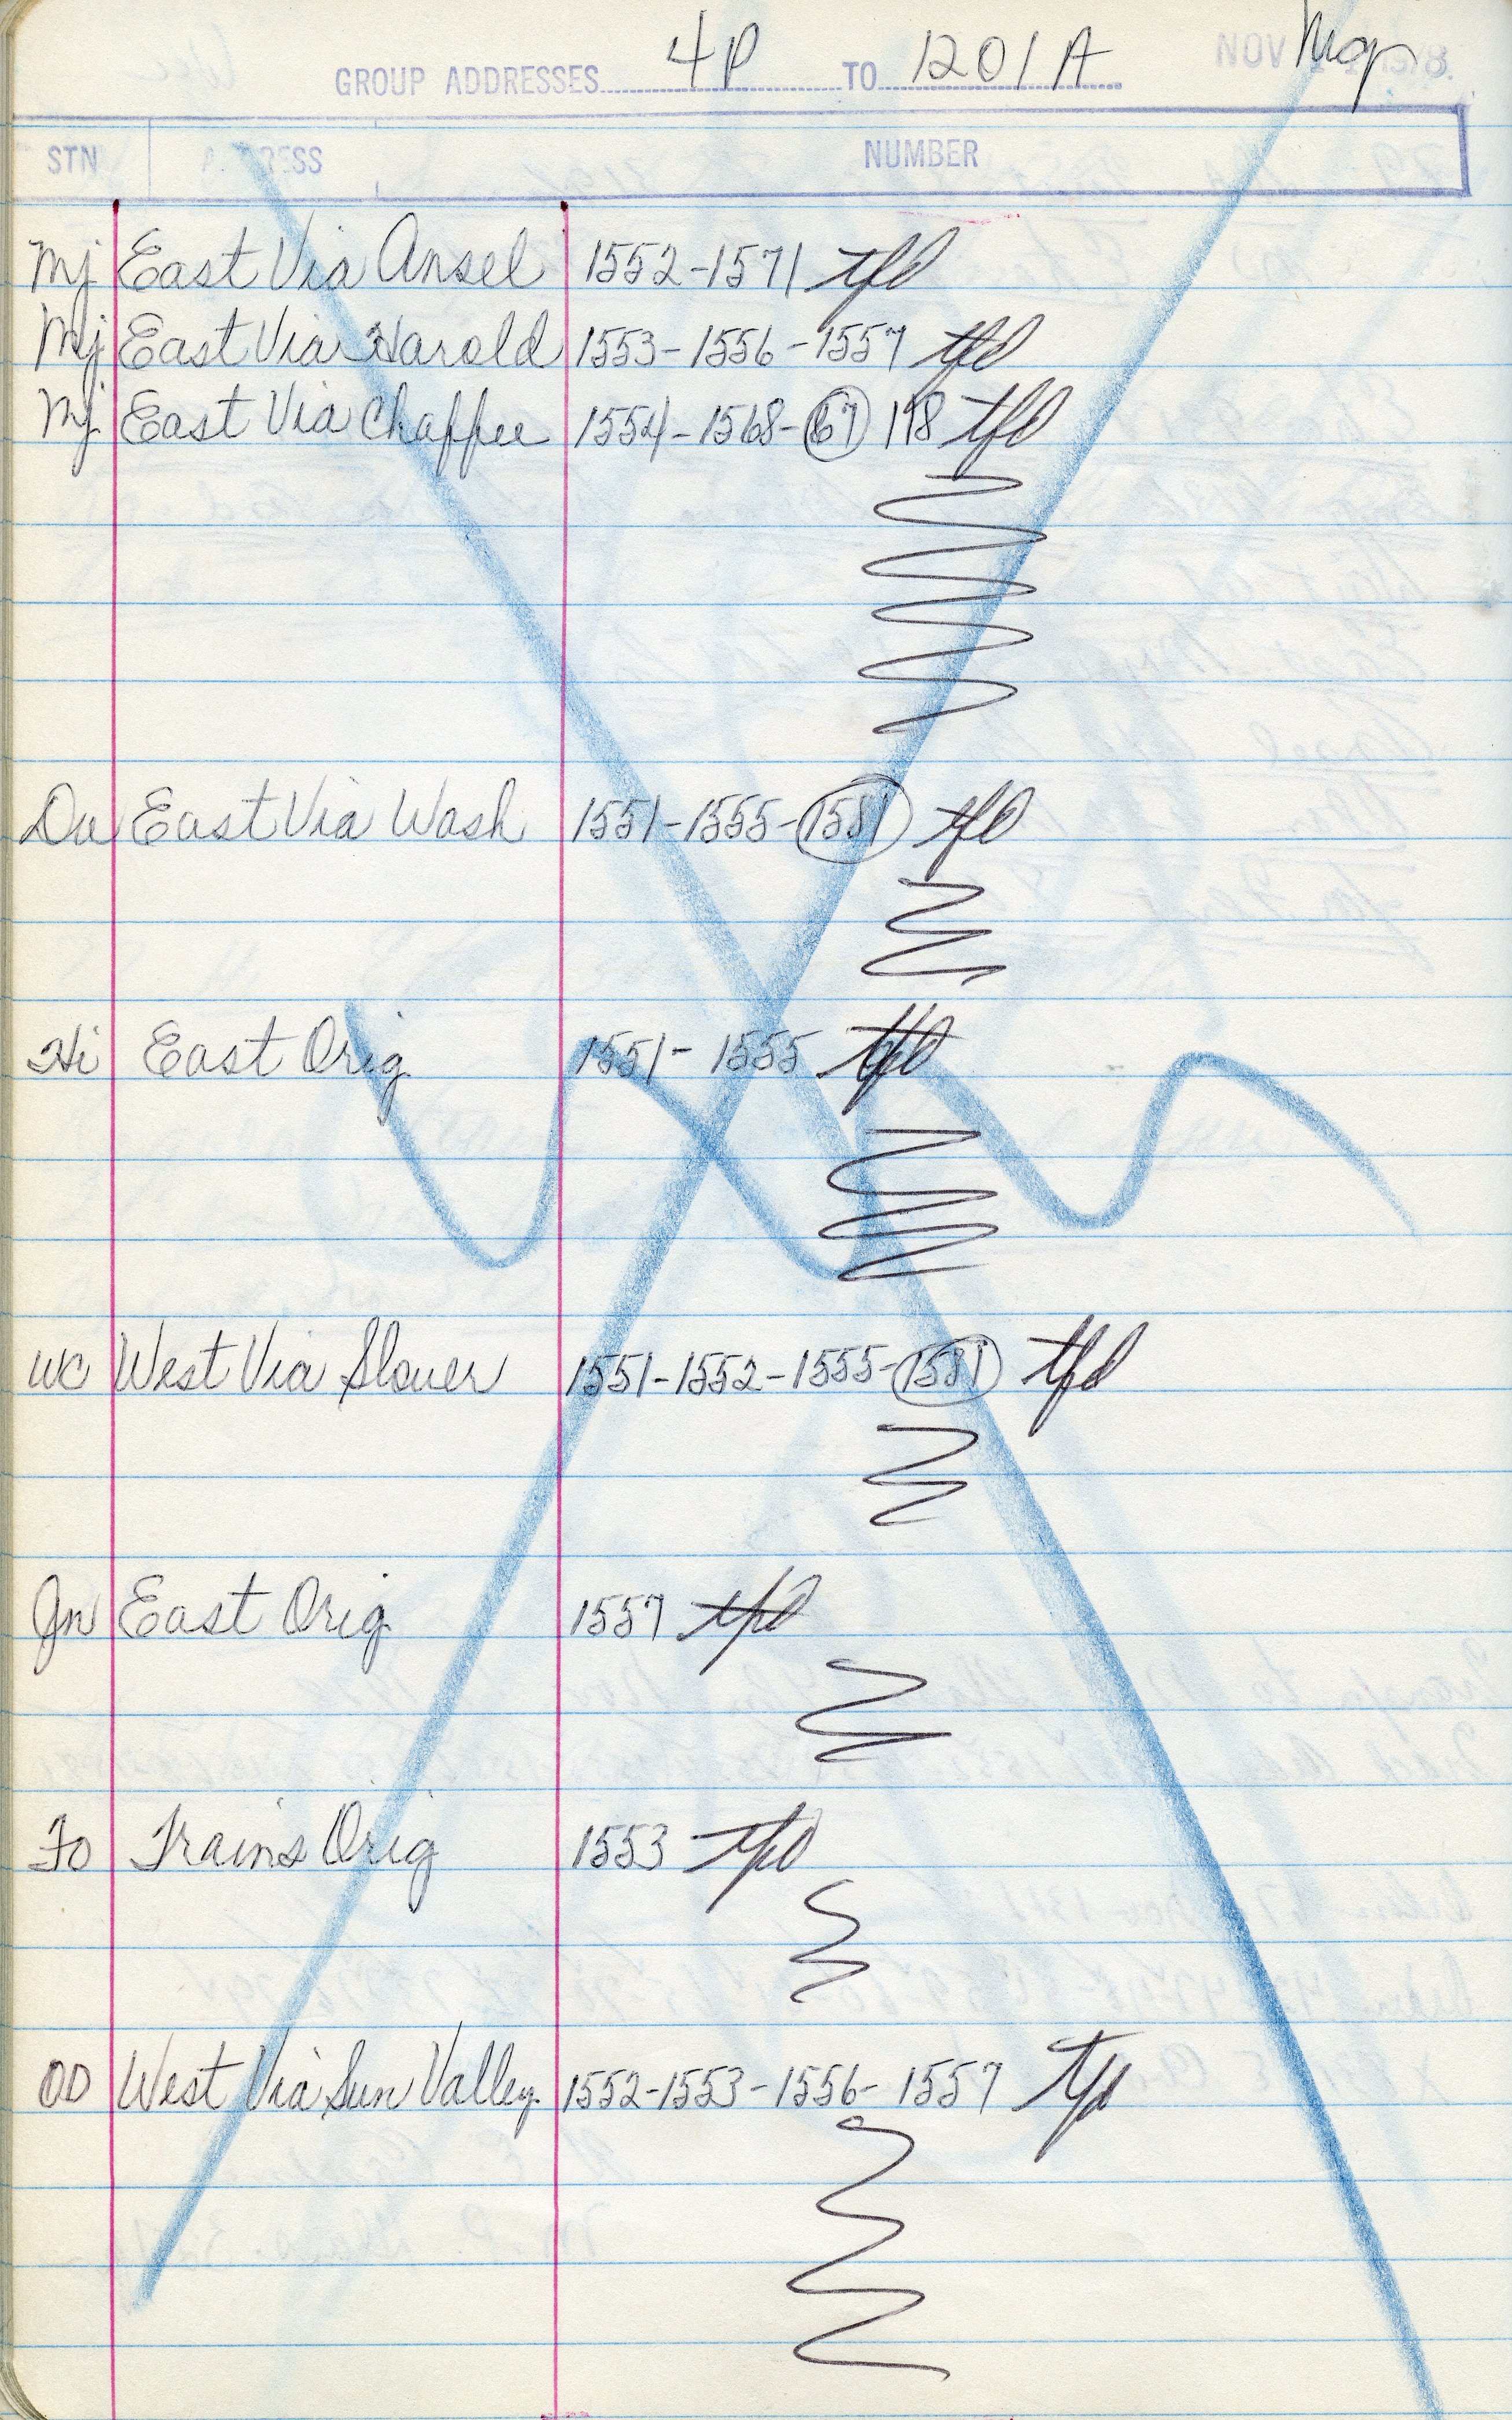 GROUP ADDRESSES 4P TO 1201A
STN ADDRESS NUMBER
Mj East Via Ansel 1552-1571 tfd
Mj East Via Harold 1553-1556-1557 tfd
Mj East Via Chaffee 1554-1568-67 118 tfd
Du East Via Wash 1551-1555-1581 tfd
Hi East Orig 1551-1555 tfd
WC West Via Slover 1551-1552-1555-1581 tfd
Jn East Orig. 1557 tfd
Fo Trains Orig 1553 tfd
OD West Via Sun Valley. 1552-1553-1556-1557 tfd